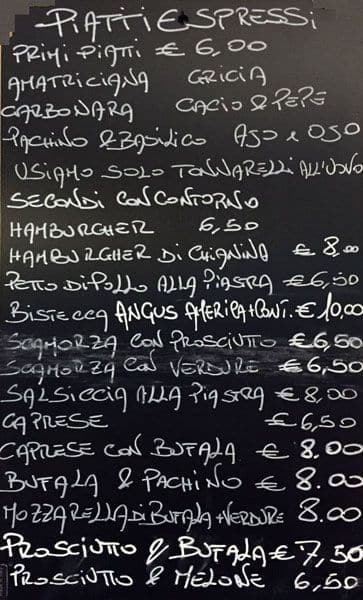 PIATTI ESPRESSI
PRIMI PIATTI € 6,00
AMATRICIANA GRICIA
CARBONARA CACIO & PEPE
PACHINO & BASILICO AJO e OJO
USIAMO SOLO TONNARELLI ALL'UOVO
SECONDI CON CONTORNO
HAMBURGHER 6,50
HAMBURGHER DI CHIANINA € 8,00
PETTO DI POLLO ALLA PIASTRA € 6,50
BISTECCA ANGUS AMERICA + CONT. € 10,00
SCAMORZA CON PROSCIUTTO € 6,50
SCAMORZA CON VERDURE € 6,50
SALSICCIA ALLA PIASTRA € 8,00
CAPRESE € 6,50
CAPRESE CON BUFALA € 8.00
BUFALA & PACHINO € 8.00
MOZZARELLA DI BUFALA + VERDURE 8.00
PROSCIUTTO & BUFALA € 7,50
PROSCIUTTO & MELONE 6,50